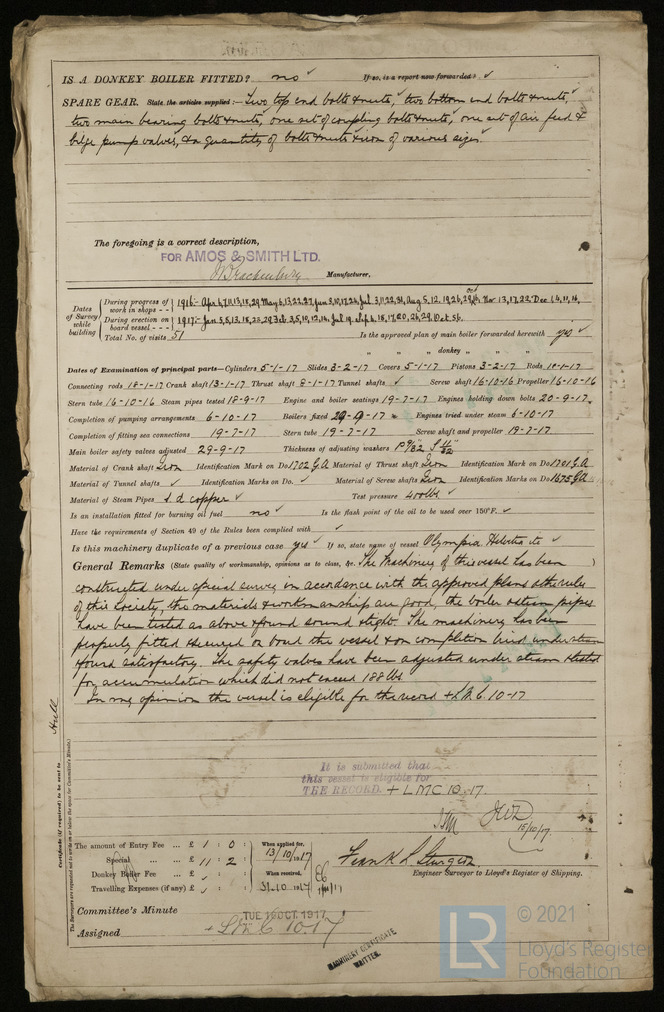 IS A DONKEY BOILER FITTED? no ✓ If so, is a report now forwarded? ✓
SPARE GEAR. State the articles supplied:— Two top end bolts & nuts, two bottom end bolts & nuts,
two main bearing bolts & nuts, one set of coupling bolts & nuts, one set of air feed &
bilge pump valves, & a quantity of bolts & nuts & iron of various sizes.
The foregoing is a correct description,
FOR AMOS & SMITH LTD.
Manufacturer.
Dates of Survey while building
During progress of work in shops - - 1916:- Apr 4,7,11,13,18,29 May 6,13,22,27 Jun 5,10,17,24 Jul 3,11,22,31, Aug 5,12,19,26, Oct Nov 13,17,22 Dec 1,4,11,16,
During erection on board vessel - - - 1917:- Jan 5,5,13,18,25,29 Feb 3,5,10,12,16 Jul 19 Sep 6,18,17,20,26,29 Oct 5,6.
Total No. of visits 51
Is the approved plan of main boiler forwarded herewith yes ✓
" " " donkey " " "
Dates of Examination of principal parts—Cylinders 5-1-17 Slides 3-2-17 Covers 5-1-17 Pistons 3-2-17 Rods 18-1-17
Connecting rods 18-1-17 Crank shaft 13-1-17 Thrust shaft 8-1-17 Tunnel shafts ✓ Screw shaft 16-10-16 Propeller 16-10-16
Stern tube 16-10-16 Steam pipes tested 18-9-17 Engine and boiler seatings 19-7-17 Engines holding down bolts 20-9-17
Completion of pumping arrangements 6-10-17 Boilers fixed 29-9-17 Engines tried under steam 6-10-17
Completion of fitting sea connections 19-7-17 Stern tube 19-7-17 Screw shaft and propeller 19-7-17
Main boiler safety valves adjusted 29-9-17 Thickness of adjusting washers P 9/32" S 11/32"
Material of Crank shaft Iron Identification Mark on Do. 1702 G.A Material of Thrust shaft Iron Identification Mark on Do. 1701 G.A
Material of Tunnel shafts ✓ Identification Marks on Do. ✓ Material of Screw shafts Iron Identification Marks on Do. 1675 G.A
Material of Steam Pipes s. d copper ✓ Test pressure 400 lbs ✓
Is an installation fitted for burning oil fuel no ✓ Is the flash point of the oil to be used over 150°F. ✓
Have the requirements of Section 49 of the Rules been complied with ✓
Is this machinery duplicate of a previous case yes ✓ If so, state name of vessel Olympia, Helvetia etc ✓
General Remarks (State quality of workmanship, opinions as to class, &c. The Machinery of this vessel has been )
constructed under special survey in accordance with the approved plans & the rules
of this Society, the materials & workmanship are good, the boiler & steam pipes
have been tested as above & found sound & tight. The machinery has been
properly fitted & secured on board the vessel & on completion tried under steam
& found satisfactory. The safety valves have been adjusted under steam & tested
for accumulation which did not exceed 188 lbs
In my opinion the vessel is eligible for the record + L.M.C. 10-17
Certificate (if required) to be sent to Hull
The Surveyors are requested not to write on or below the space for Committee's Minute.
It is submitted that
this vessel is eligible for
THE RECORD. + LMC 10.17.
15/10/17
The amount of Entry Fee ... £ 1 : 0 : When applied for,
Special ... ... £ 11 : 2 : 13/10/1917
Donkey Boiler Fee ... £ ✓ : : When received,
Travelling Expenses (if any) £ ✓ : : 31.10.1917
Frank L Sturgeon.
Engineer Surveyor to Lloyd's Register of Shipping.
Committee's Minute TUE 16 OCT. 1917
Assigned + L.M.C. 10.17
MACHINERY CERTIFICATE
WRITTEN.
LR © 2021
Lloyd's Register
Foundation